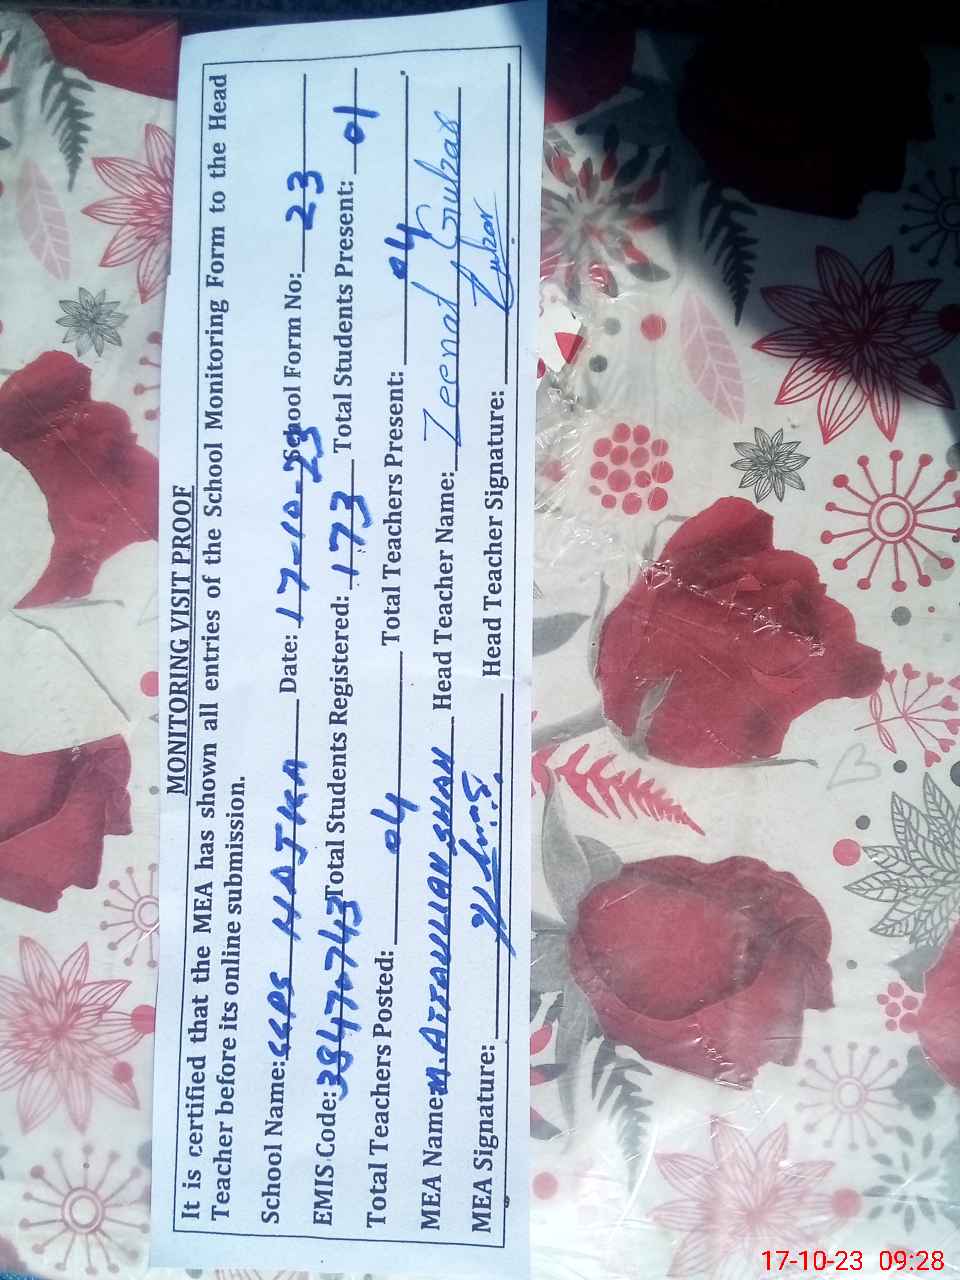 MONITORING VISIT PROOF
It is certified that the MEA has shown all entries of the School Monitoring Form to the Head
Teacher before its online submission.
School Name: GGPS HAJIRA Date: 17-10-23 School Form No: 23
EMIS Code: 38470743 Total Students Registered: 173 Total Students Present: 01
Total Teachers Posted: 04 Total Teachers Present: 04
MEA Name: M. ATTAULLAH SHAH Head Teacher Name: Zeenat Gulzar
MEA Signature: Head Teacher Signature:
17-10-23 09:28